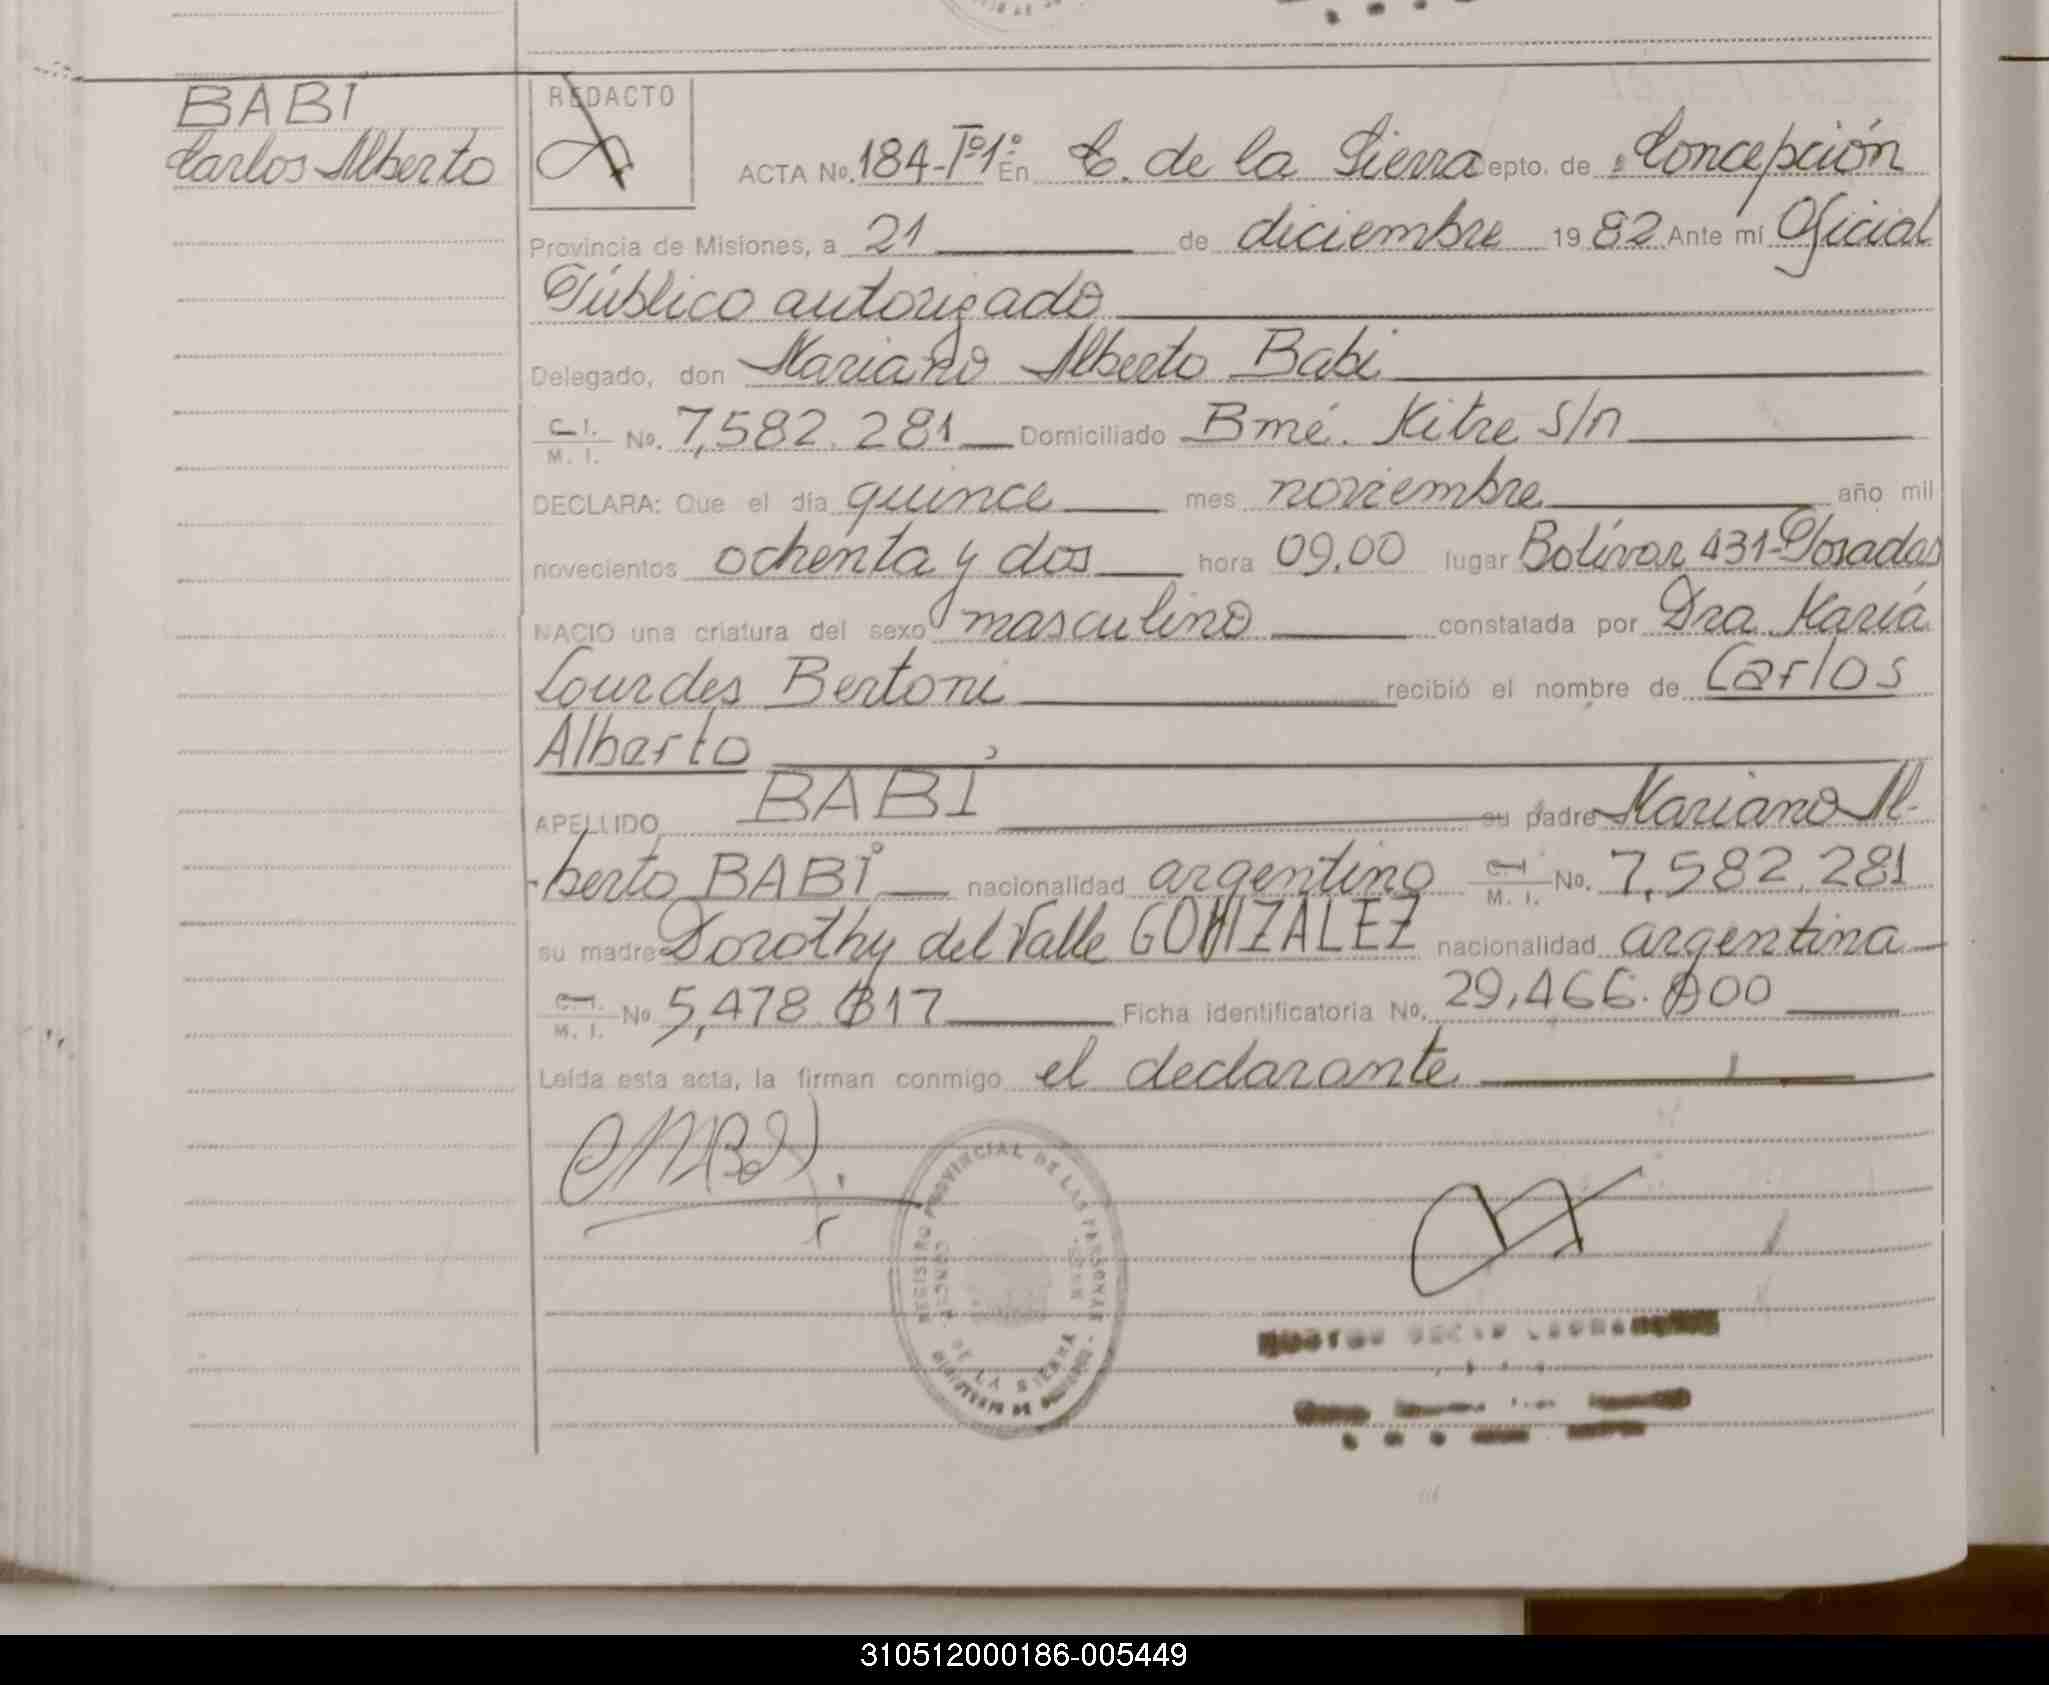 BABI
Carlos Alberto
REDACTO
ACTA No. 184-Tº1º En C. de la Sierra epto. de Concepción
Provincia de Misiones, a 21 de diciembre 1982 Ante mí Oficial
Público autorizado
Delegado, don Mariano Alberto Babi
C. I. M. I. No. 7,582.281 Domiciliado Bmé. Mitre s/n
DECLARA: Que el día quince mes noviembre año mil
novecientos ochenta y dos hora 09,00 lugar Bolívar 431-Posadas
NACIO una criatura del sexo masculino constatada por Dra María
Lourdes Bertoni recibió el nombre de Carlos
Alberto
APELLIDO BABI su padre Mariano Al-
-berto BABI nacionalidad argentino C. I. M. I. No. 7,582.281
su madre Dorothy del Valle GONZALEZ nacionalidad argentina
C. I. M. I. No 5,478.817 Ficha identificatoria No. 29,466.000
Leída esta acta, la firman conmigo el declarante
REGISTRO PROVINCIAL DE LAS PERSONAS
DE LA SIERRA
310512000186-005449